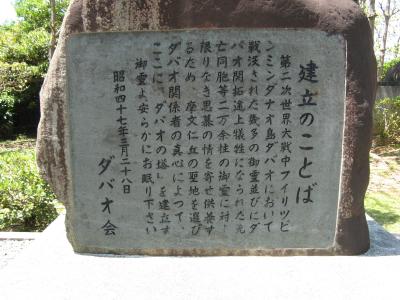 建立のことば
第二次世界大戦中フイリッピ
ンミンダナオ島ダバオにおいて
戦没された幾多の御霊並びにダ
バオ開拓途上犠牲になられた元
亡同胞等二万余柱の御霊に対し
限りなき思慕の情を寄せ供養す
るため、摩文仁丘の聖地を選び
ダバオ関係者の真心によって、
ここに「ダバオの塔」を建立す
御霊よ安らかにお眠り下さい
昭和四十七年三月二十八日
ダバオ会